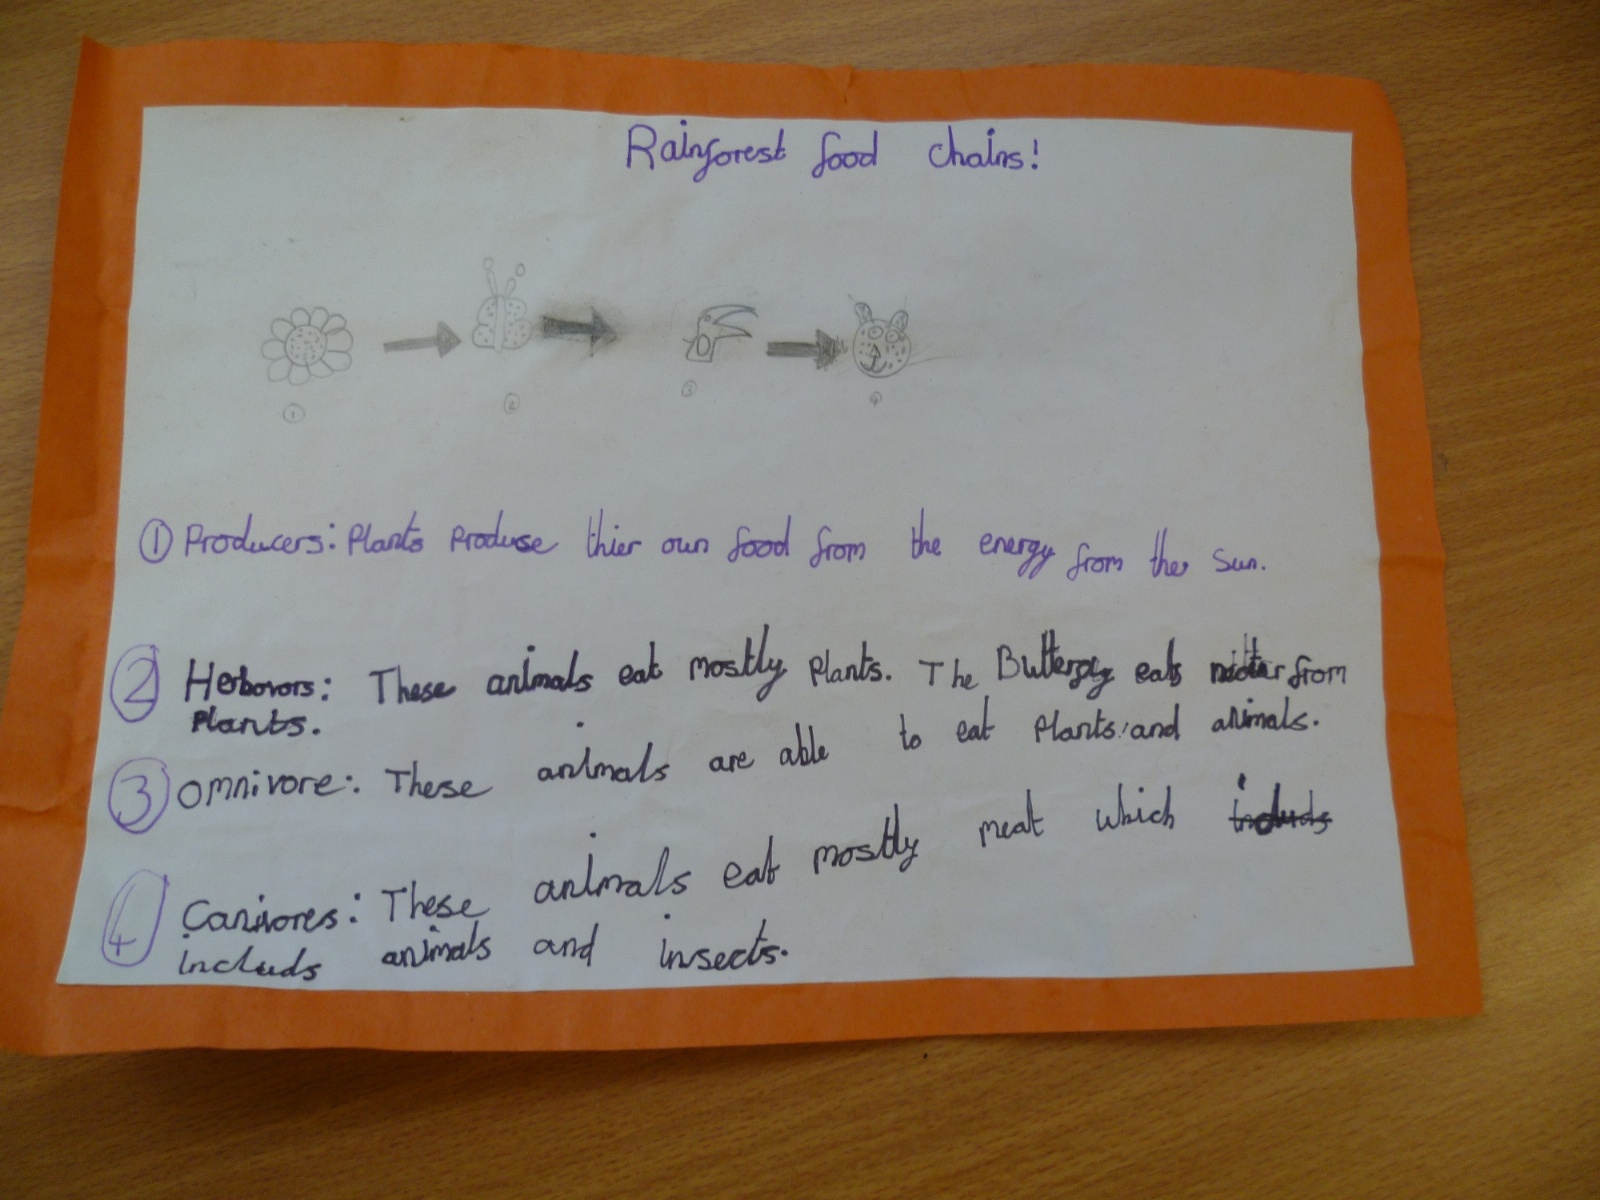 Rainforest food chains!
① ② ③ ④
① Producers: Plants Produse thier own food from the energy from the sun.
② Herbovors: These animals eat mostly plants. The Butterfly eats from
Plants.
③ omnivore: These animals are able to eat plants and animals.
④ Carnivores: These animals eat mostly meat which includs
includs animals and insects.